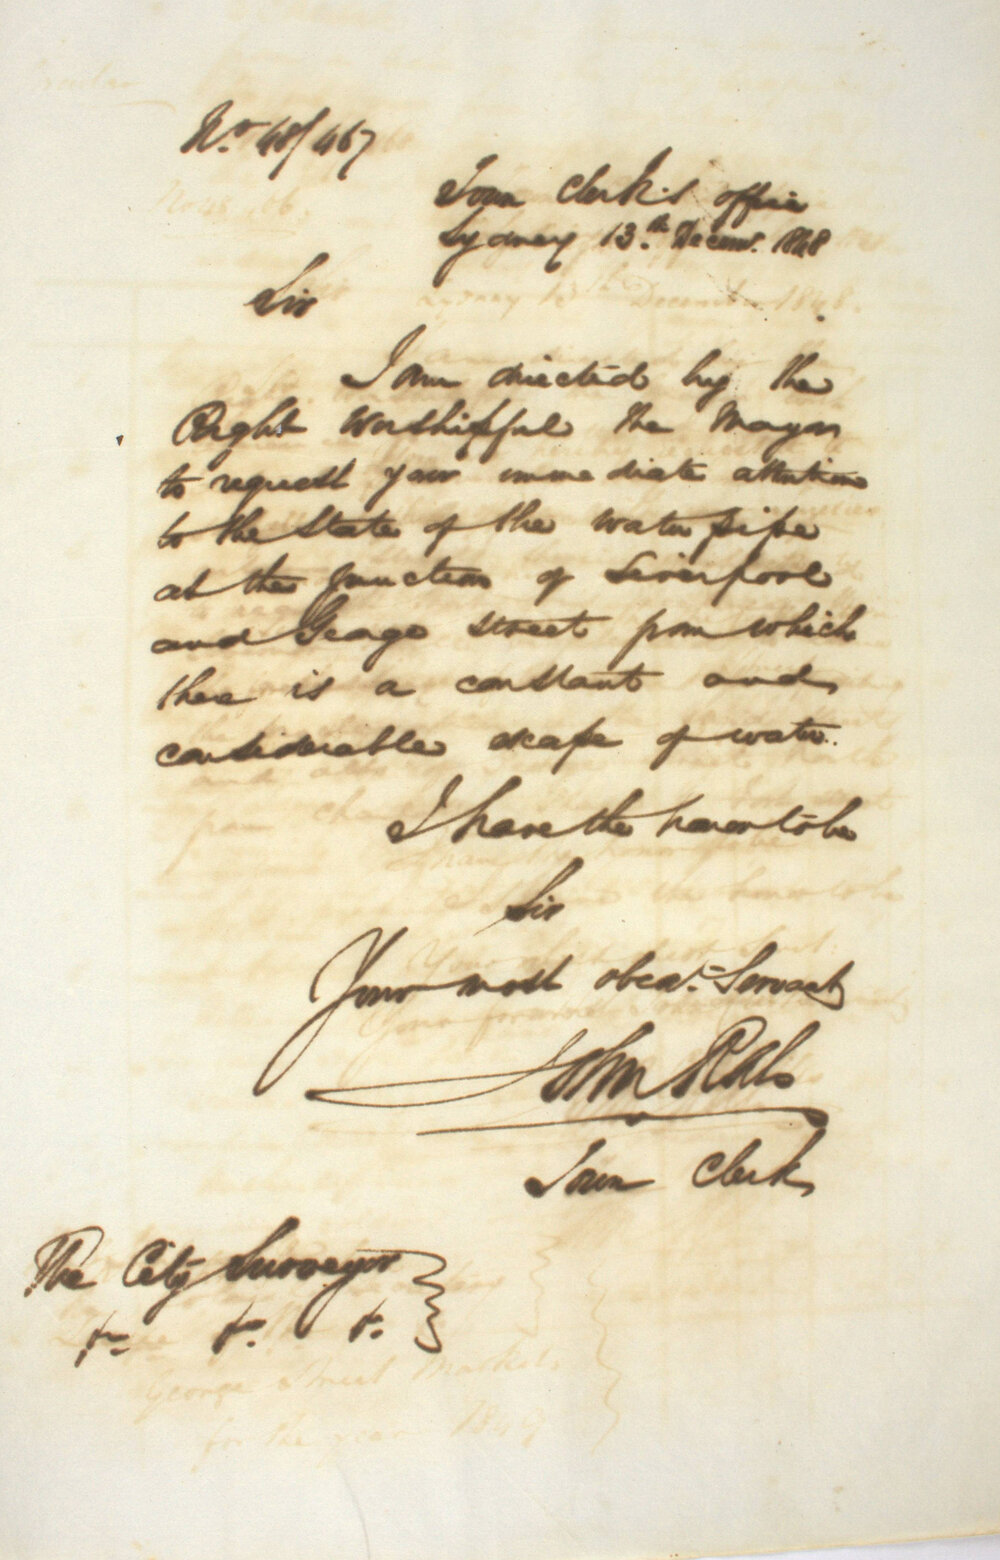 No. 48/467
Town Clerk's office
Sydney 13th Decemr. 1848
Sir
I am directed by the
Right Worshipful the Mayor
to request your immediate attention
to the State of the water pipe
at the junction of Liverpool
and George street from which
there is a constant and
considerable escape of water.
I have the honor to be
Sir
Your most obedt. Servant
John Rae
Town Clerk
The City Surveyor
&c &c. &c.